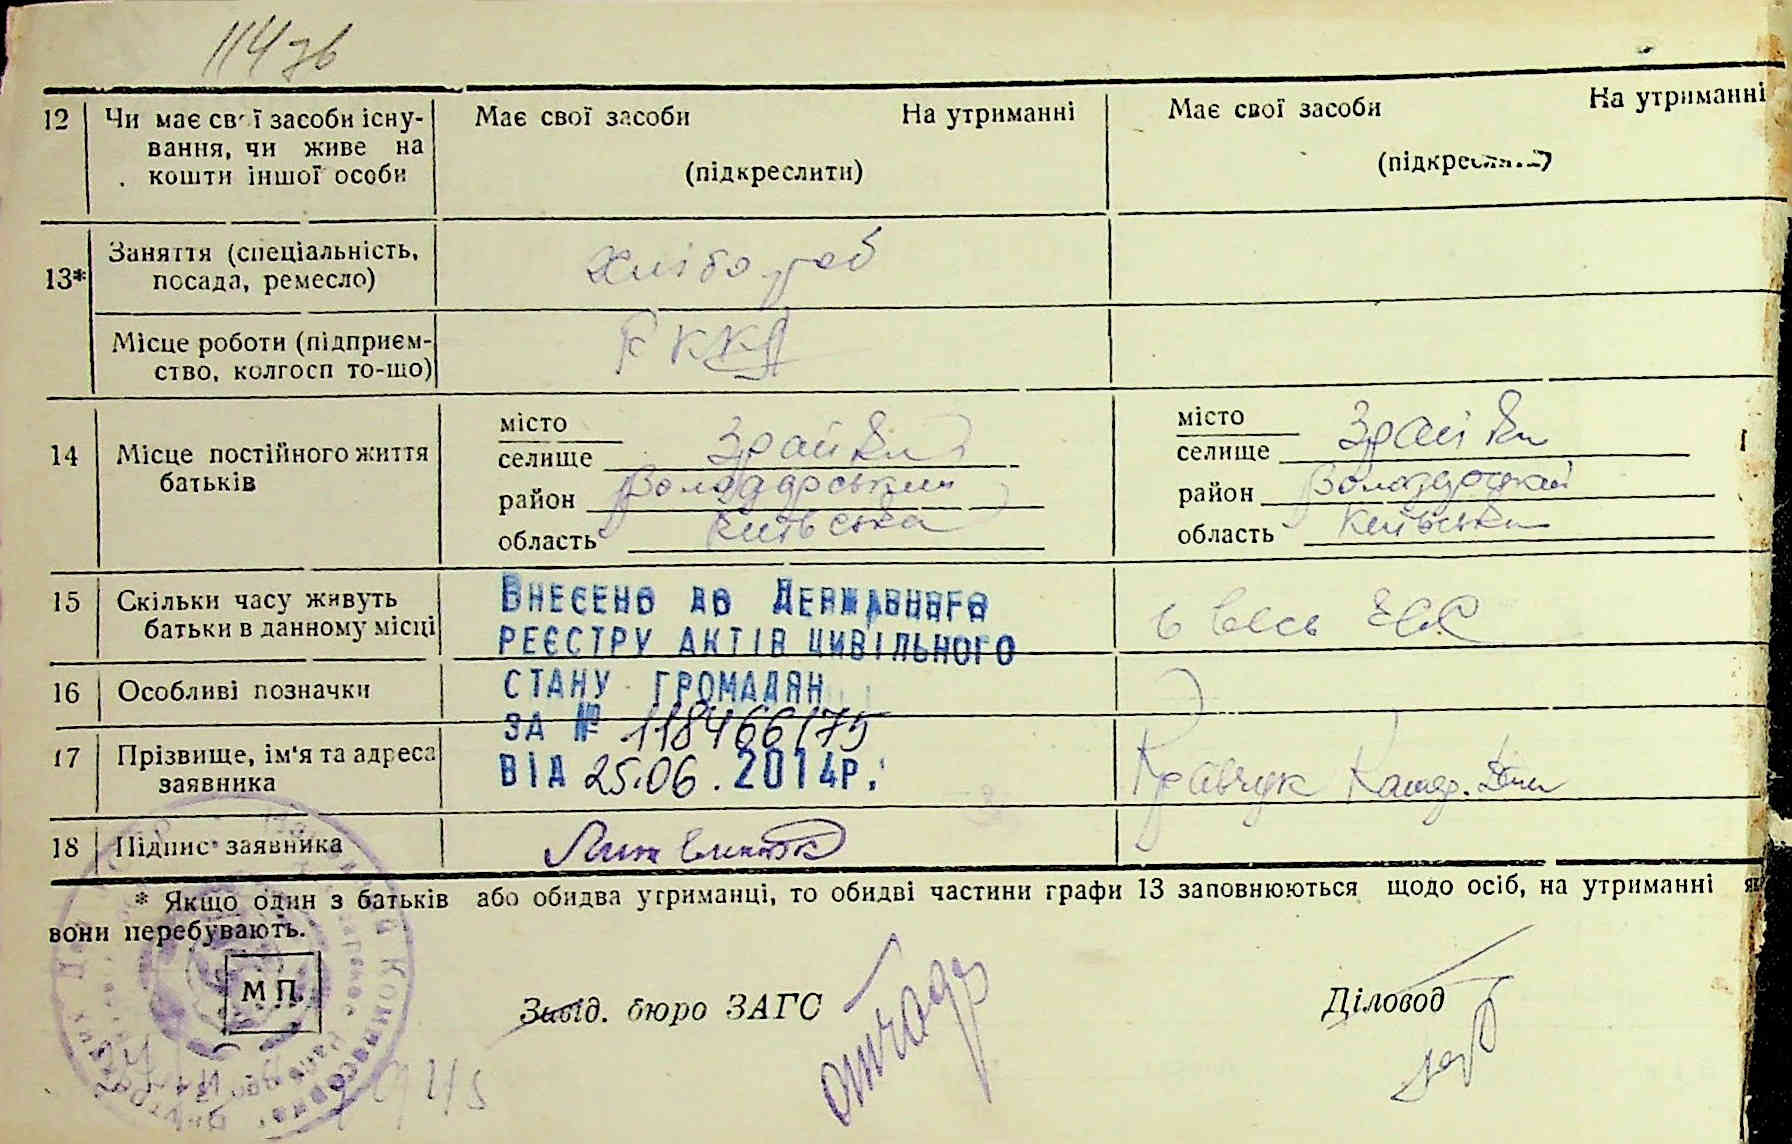 114
12 Чи має свої засоби існу-
вання, чи живе на
кошти іншої особи
Має свої засоби На утриманні
(підкреслити)
Має свої засоби На утриманні
(підкреслити)
13* Заняття (спеціальність,
посада, ремесло)
Хлібороб
Місце роботи (підприєм-
ство, колгосп то-що)
РККА
14 Місце постійного життя
батьків
місто
селище Зрайки
район Володарський
область Київська
місто
селище Зрайки
район Володарський
область Київська
15 Скільки часу живуть
батьки в данному місці
ВНЕСЕНО ДО ДЕРЖАВНОГО
РЕЄСТРУ АКТІВ ЦИВІЛЬНОГО
СТАНУ ГРОМАДЯН
ЗА № 118466175
ВІД 25.06.2014р.
весь
16 Особливі позначки
17 Прізвище, ім'я та адреса
заявника
Кравчук
18 Підпис заявника
* Якщо один з батьків або обидва утриманці, то обидві частини графи 13 заповнюються щодо осіб, на утриманні як
вони перебувають.
М П.
Завід. бюро ЗАГС
Діловод